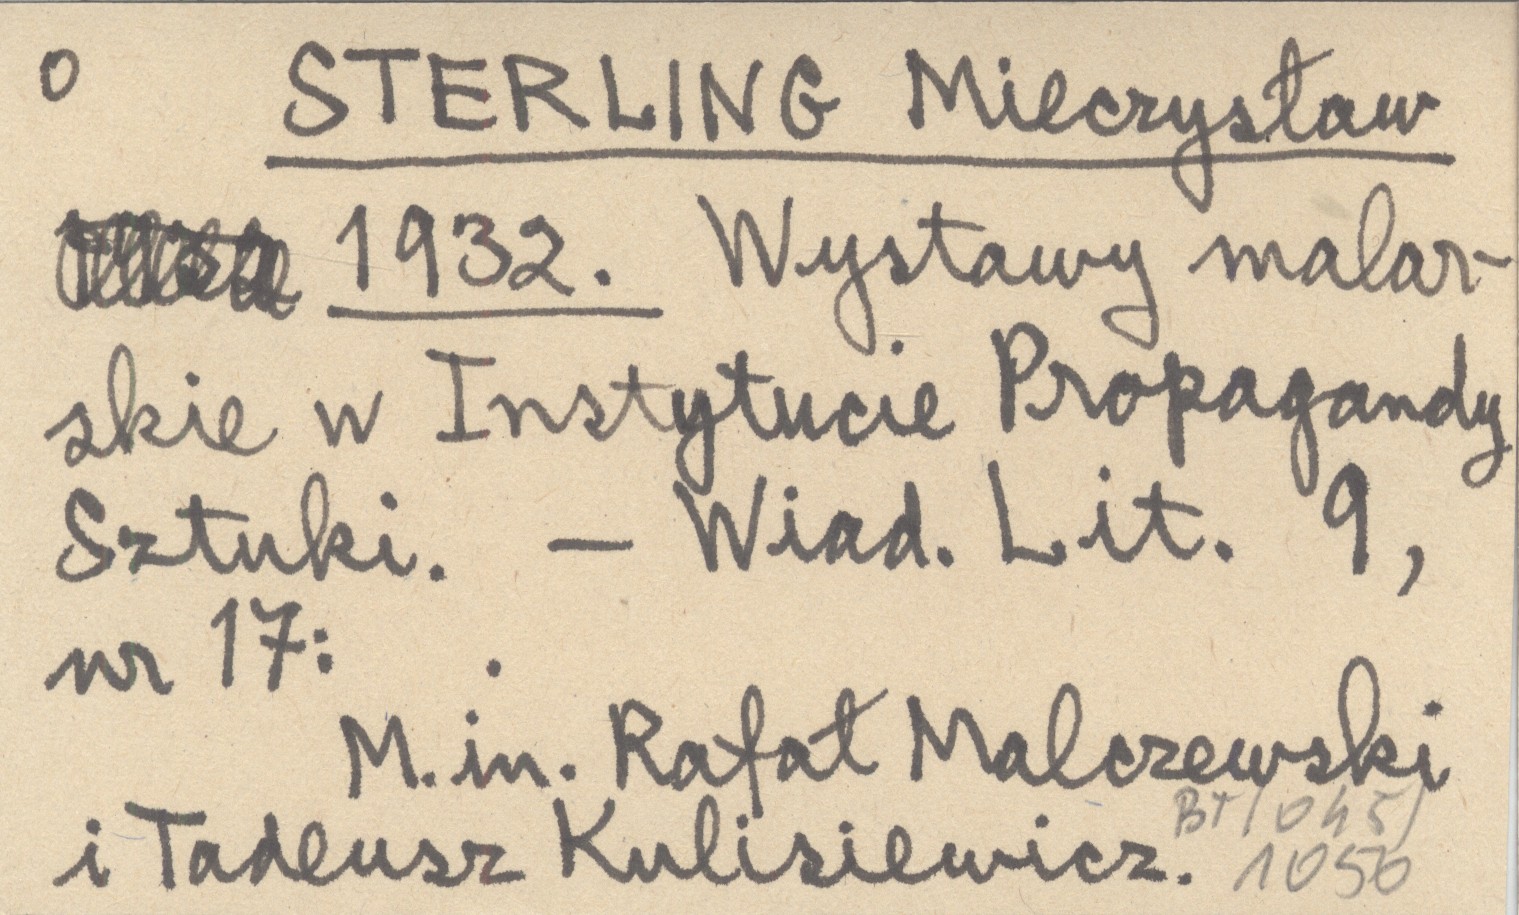 o STERLING Mieczysław
1932. Wystawy malar-
skie w Instytucie Propagandy
Sztuki. – Wiad. Lit. 9,
nr 17:
M.in. Rafał Malczewski
i Tadeusz Kulisiewicz.
BT/045/
1050